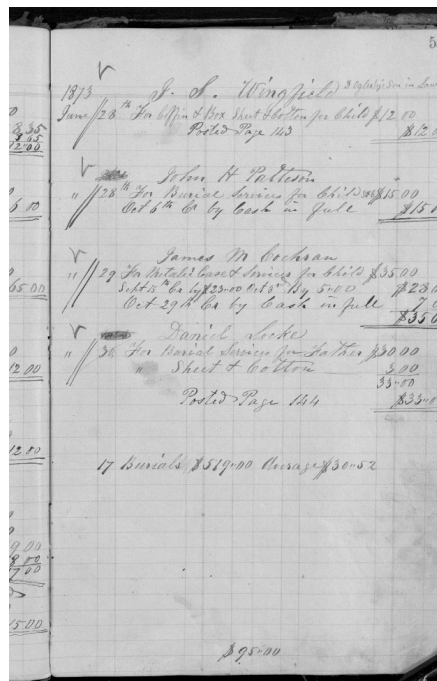 5
1873 J. S. Wingfield D Oglesby's Son in Law
June 28th For Coffin & Box Sheet & Cotton for Child $12.00
Posted Page 143 $12.0
John H Patteson
" 28th For Burial Services for Child $15.00
Oct 6th Cr by Cash in full $15.0
James M Cochran
" 29 For Metalic Case & Services for Child $35.00
Sept 15th Cr by $23=00 Oct 3rd By 5=00 $28.0
Oct 29th Cr by Cash in full 7
$35.0
Daniel Locke
" 30 For Burial Services for Father $30.00
" Sheet & Cotton 3.00
33=00
Posted Page 144 $33.0
17 Burials $519=00 Average $30=52
$95=00
8.35
3.65
12=00
6 00
65 00
12.00
12.00
9 00
8 00
7 00
15.00